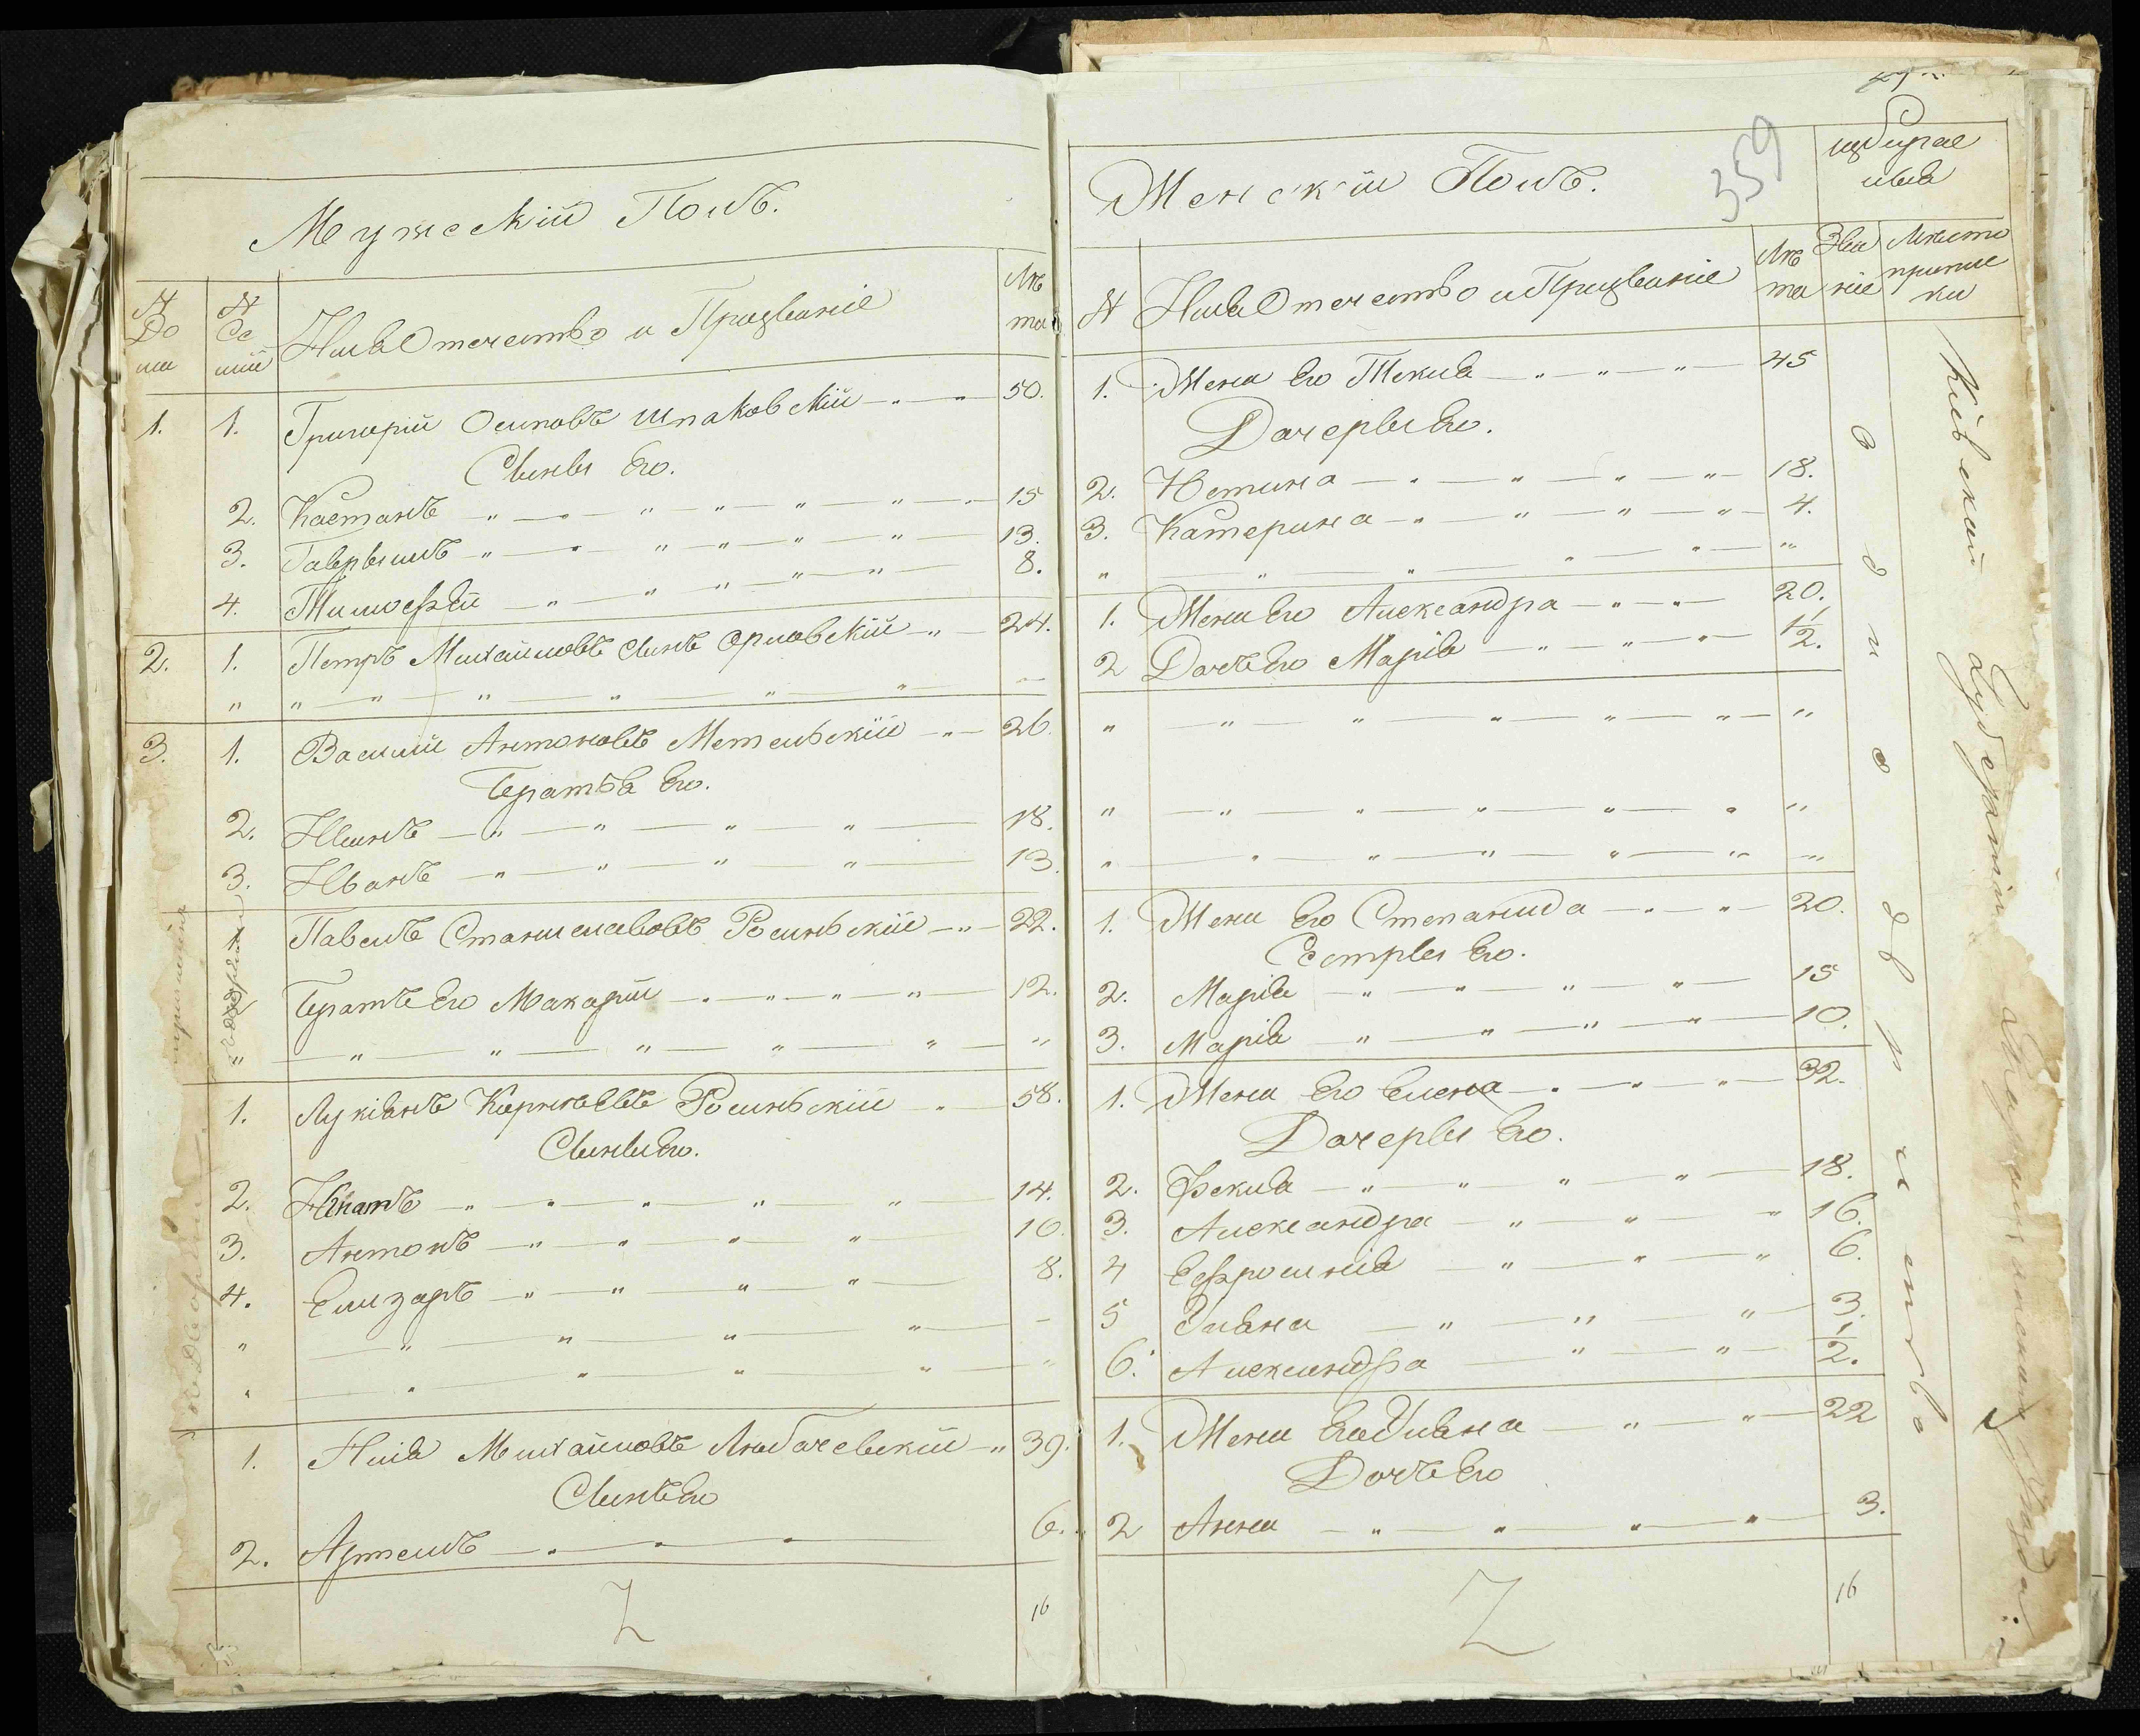 Мужескій Полъ.
№ До ма
№ Се мій
Имя Отечество и Призваніе
Лѣ та
1. 1. Григорій Осиповъ Шпаковскій 50.
Сыны Его.
2. Каетанъ 15
3. Гаврыилъ 13.
4. Тимофей 8.
2. 1. Петръ Михайловъ сынъ Орловскій 24.
3. 1. Василій Антоновъ Метельскій 26
Братья Его.
2. 18.
3. Иванъ 13.
1. Павелъ Станиславовъ Росинскій 22.
2. Братъ Его Макарій 12.
1. Лукіянъ Корнѣевъ Росинскій 58.
Сыны Его.
2. Игнатъ 14.
3. Антонъ 10.
4. Елизаръ 8.
1. Илія Михайловъ Любачевскій 39.
Сынъ Его
2. Артемъ 6.
16
359
Женскій Полъ.
№
Имя Отечество и Призваніе
Лѣ та
Зва ніе
Мѣсто припис ки
1. Жена Его Текля 45
Дочеры Его.
2. Юстина 18.
3. Катерина 4.
1. Жена Его Александра 20.
2 Дочь Его Марія 1/2.
1. Жена Его Степанида 20.
Сестры Его.
2. Марія 15
3. Марія 10.
1. Жена Его Елена 32.
Дочеры Его.
2. Фекла 18.
3. Александра 16.
4 Ефросинія 6.
5 Уляна 3.
6. Александра 1/2.
1. Жена Его Уляна 22
Дочь Его
2 Анна 3.
16
Однодворчества
Кіевской Губерніи